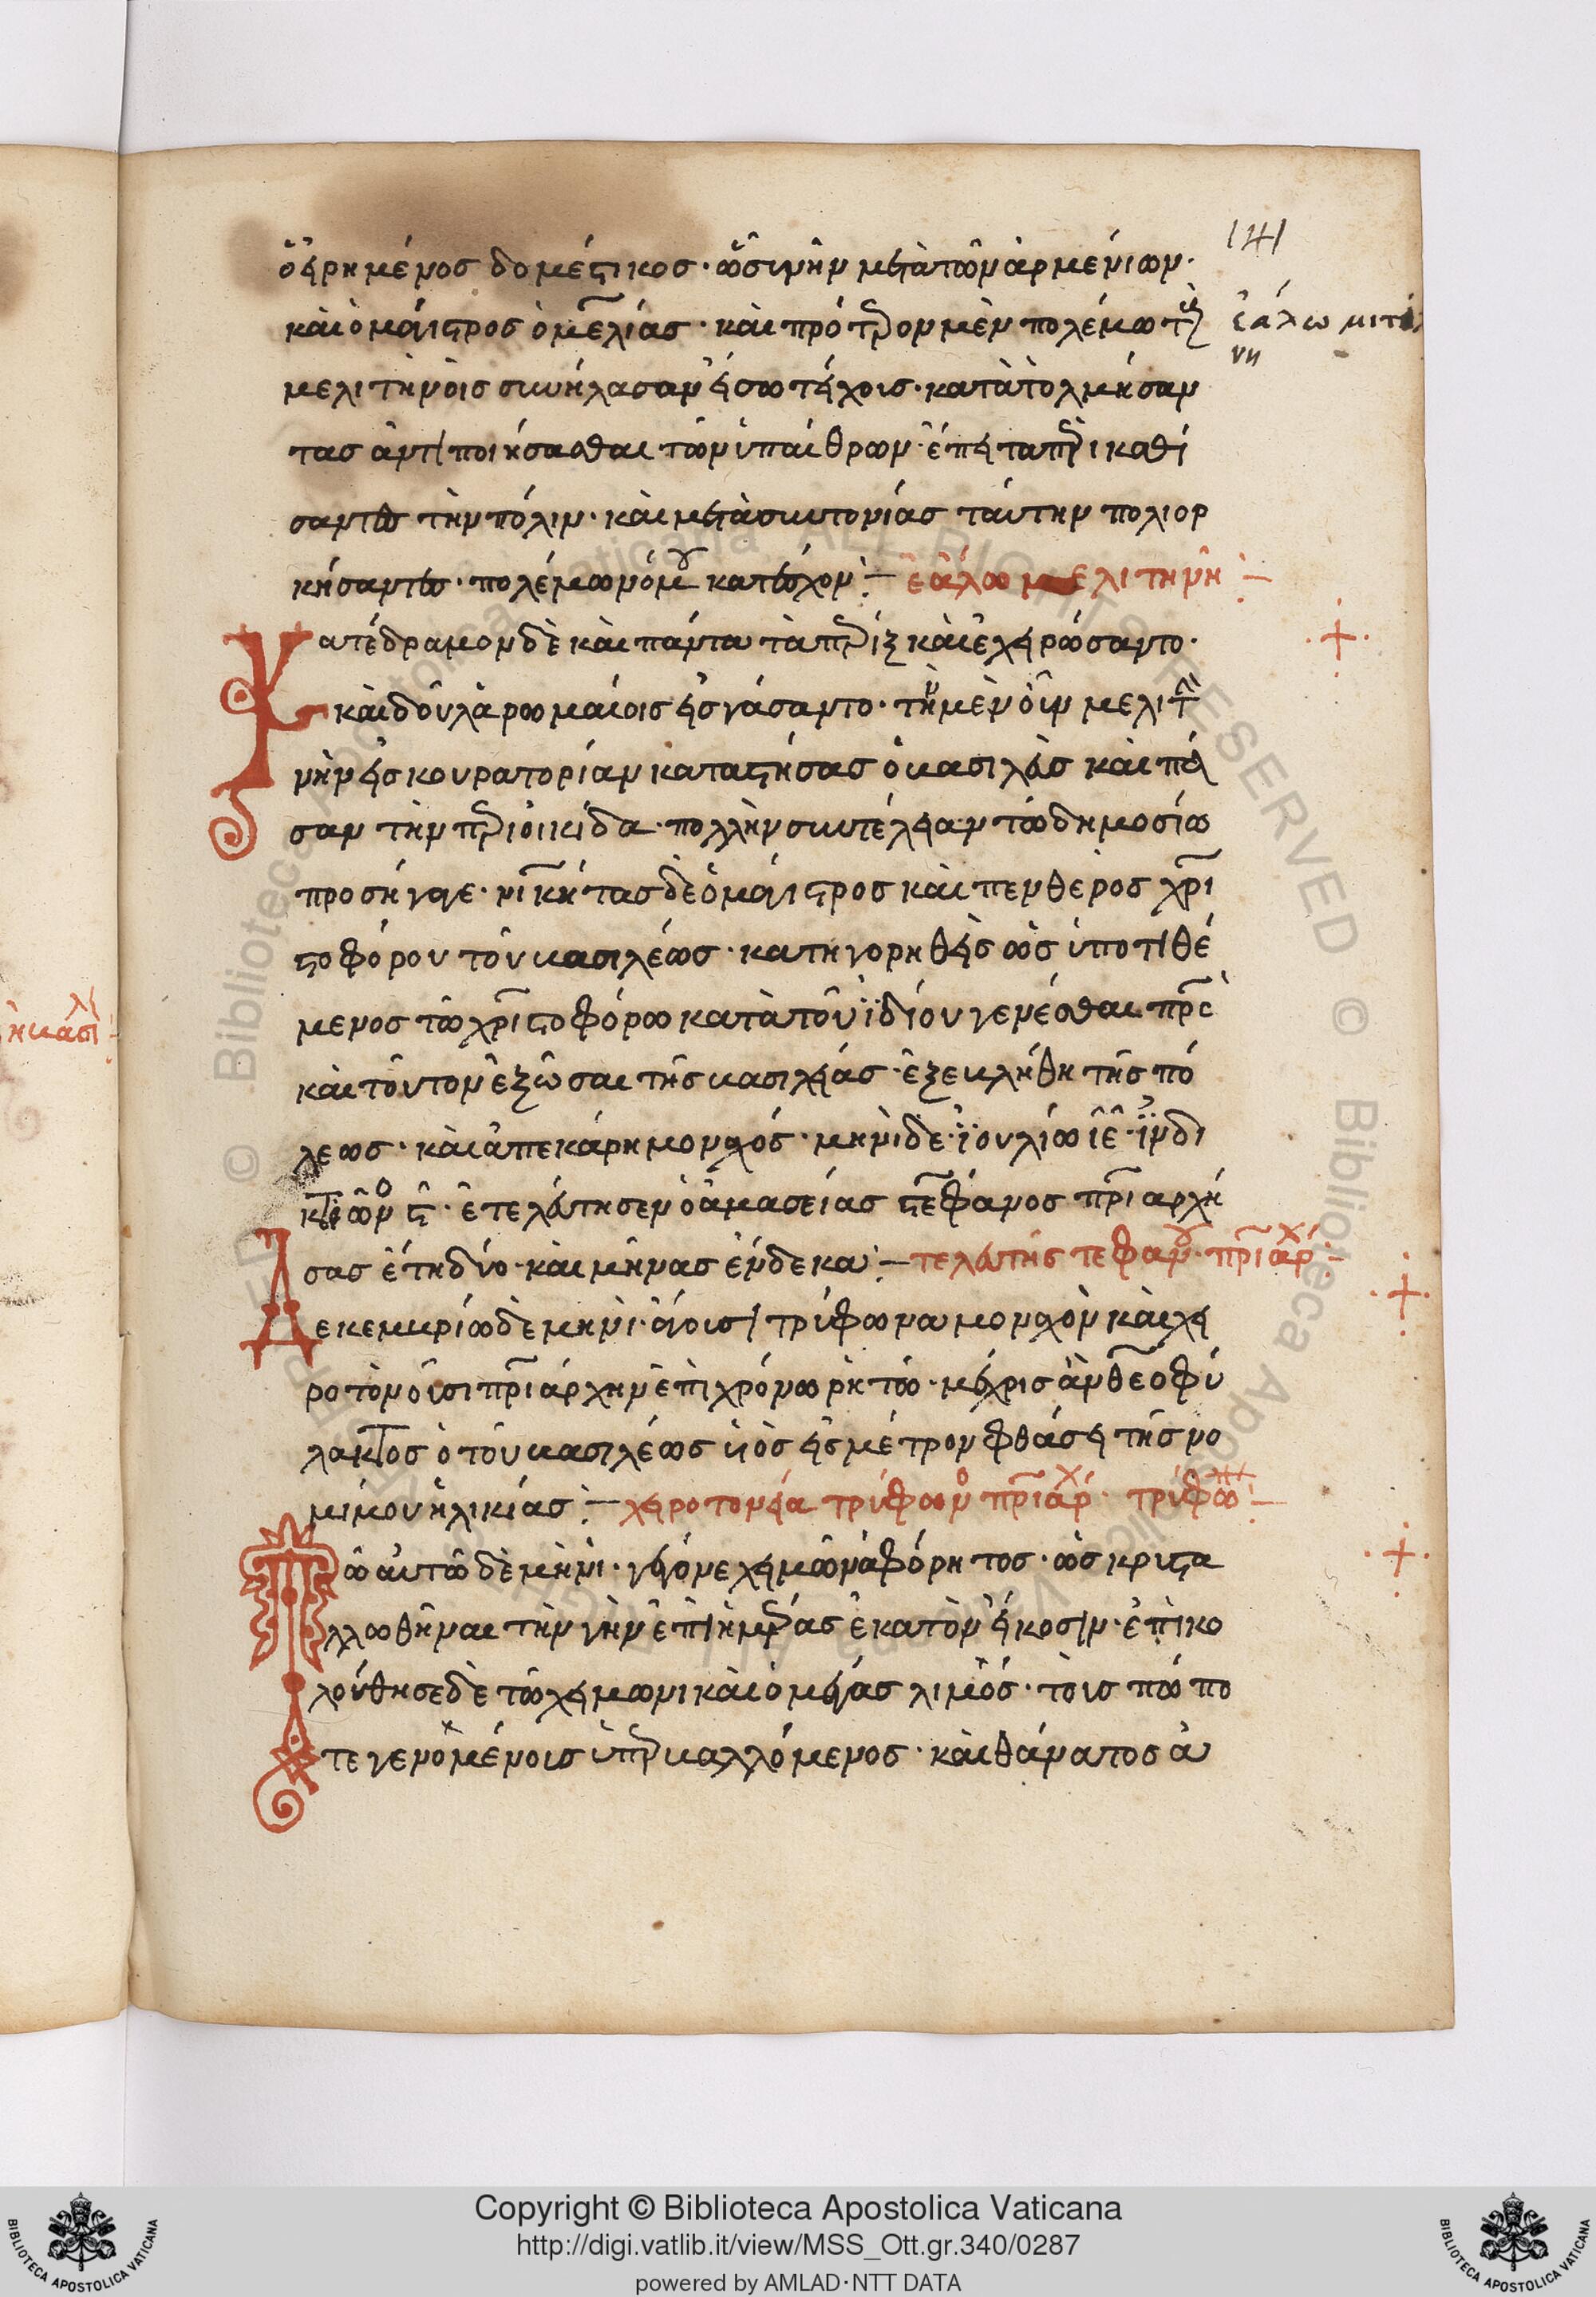 ὁ εἰρημένος δομέστικος · ὧ συνῆν μετὰ τῶν ἀρμενίων ·
141
καὶ ὁ μάγιστρος ὁ μελίας · καὶ πρότερον μὲν πολέμω τοὺς
ἑάλω μιτι
νη
μελιτηνοὶς συνήλασαν εἴσω τείχοις · κατατολμήσαν
τας ἀντιποιήσασθαι τῶν ὑπαίθρων · ἔπειτα περικαθί
σαντες τὴν πόλιν · καὶ μετὰ συντονίας ταύτην πολιορ
κήσαντες · πολέμω νόμου κατέσχον :– ἑάλω μελιτηνὴ :–
Κατέδραμον δὲ καὶ πάντα τὰ πέριξ καὶ ἐχειρώσαντο ·
καὶ δοῦλα ρωμαίοις εἰσγάσαντο · τὴν μὲν οὖν μελιτη
νὴν εἰς κουρατορίαν καταστήσας ὁ βασιλεὺς καὶ πᾶ
σαν τὴν περιοικίδα · πολλὴν συντέλειαν τῶ δημοσίω
προσήγαγε · νικήτας δὲ ὁ μάγιστρος καὶ πενθερὸς χρι
στοφόρου τοῦ βασιλέως · κατηγορηθεὶς ὡς ὑποτιθέ
μενος τῶ χριστοφόρω κατὰ τοῦ ἰδίου γενέσθαι πρς
καὶ τοῦτον ἐξῶσαι τῆς βασιλείας · ἐξεβλήθη τῆς πό
λεως · καὶ ἀπεκάρη μοναχός · μηνὶ δὲ ἰουλίω ιε · ἰνδι
κτιῶνο ϛ · ἐτελεύτησεν ὁ ἀμασείας στέφανος πριαρχή
σας ἔτη δύο · καὶ μῆνας ἕνδεκα :– τελευτὴ στεφάνου · πριάρχ :–
Δεκεμβρίω δὲ μηνὶ · ἄγουσι τρύφωνα μοναχὸν καὶ χει
ροτονοῦσι πριάρχην ἐπὶ χρόνω ρητῶ · μέχρις ἂν θεοφύ
λακτος ὁ τοῦ βασιλέως υἱὸς εἰς μέτρον φθάσει τῆς νο
μίμου ἡλικίας :– χειροτονεία τρύφωνο πριάρχ · τρύφω :–
Τῶ αὐτῶ δὲ μηνὶ · γέγονε χειμῶν ἀφόρητος · ὡς κρυστα
λλωθῆναι τὴν γὴν ἐπὶ ἡμέρας ἑκατὸν εἴκοσιν · ἐπικο
λούθησε δὲ τῶ χειμῶνι καὶ ὁ μέγας λιμός · τοὶς πώπο
τε γενομένοις ὑπερβαλλόμενος · καὶ θάνατος ἀ
Copyright © Biblioteca Apostolica Vaticana
http://digi.vatlib.it/view/MSS_Ott.gr.340/0287
powered by AMLAD·NTT DATA